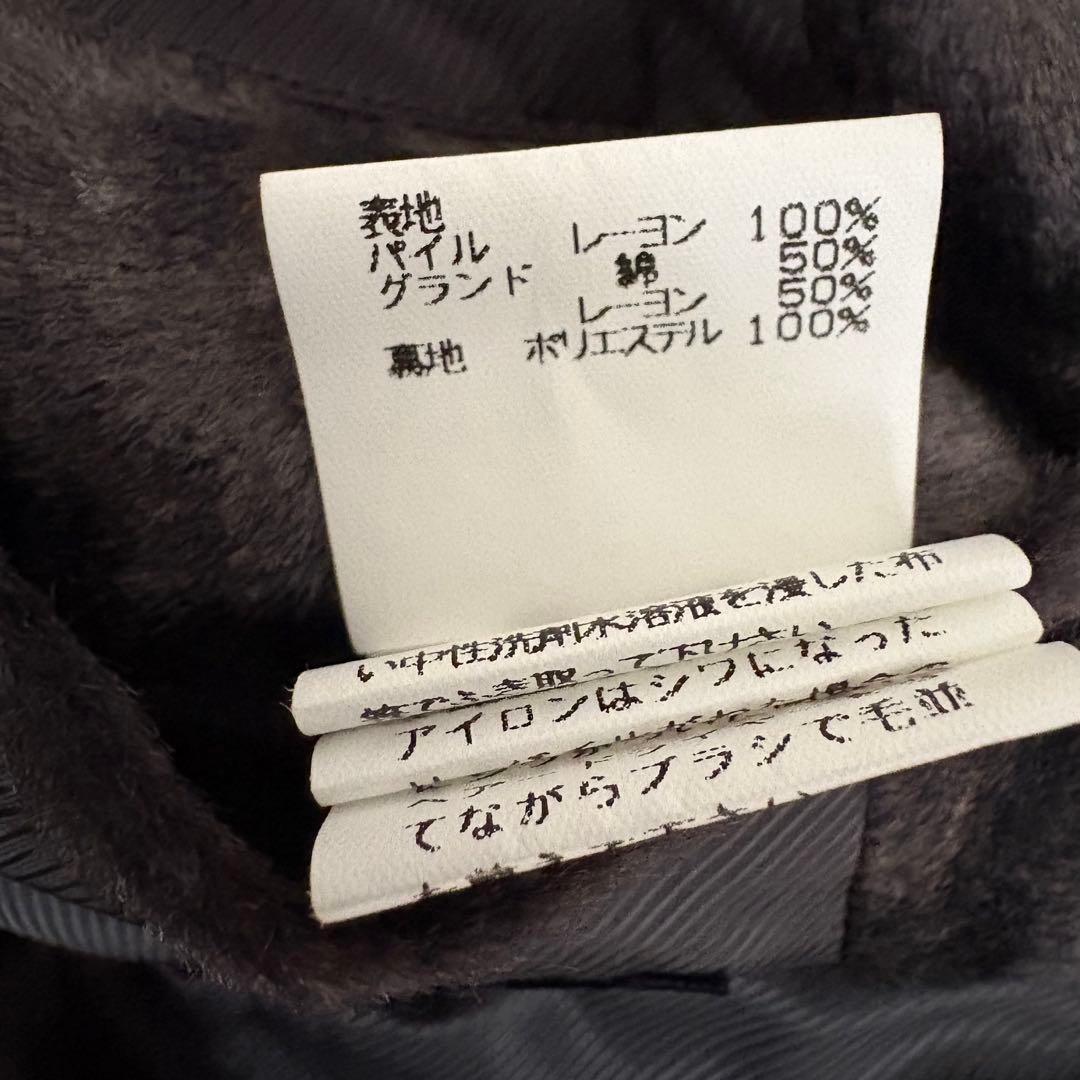 表地
パイル レーヨン 100%
グランド 綿 50%
レーヨン 50%
裏地 ポリエステル 100%
い中性洗剤水溶液を浸した布
等でふき取って下さい
アイロンはシワになった
てながらブラシで毛並